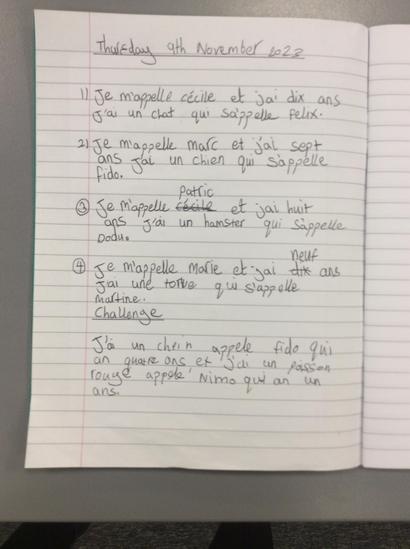 Thursday 9th November 2023
1) Je m'appelle cécile et j'ai dix ans
J'ai un chat qui s'appelle Felix.
2) Je m'appelle marc et j'ai sept
ans j'ai un chien qui s'appelle
fido.
Patric
③ Je m'appelle cécile et j'ai huit
ans j'ai un hamster qui s'appelle
Dodu.
neuf
④ Je m'appelle Marie et j'ai dix ans
J'ai une tortue qui s'appelle
martine.
Challenge
J'ai un chein appele fido qui
an quatre ans et j'ai un poisson
rouge appele Nimo qui an un
ans.